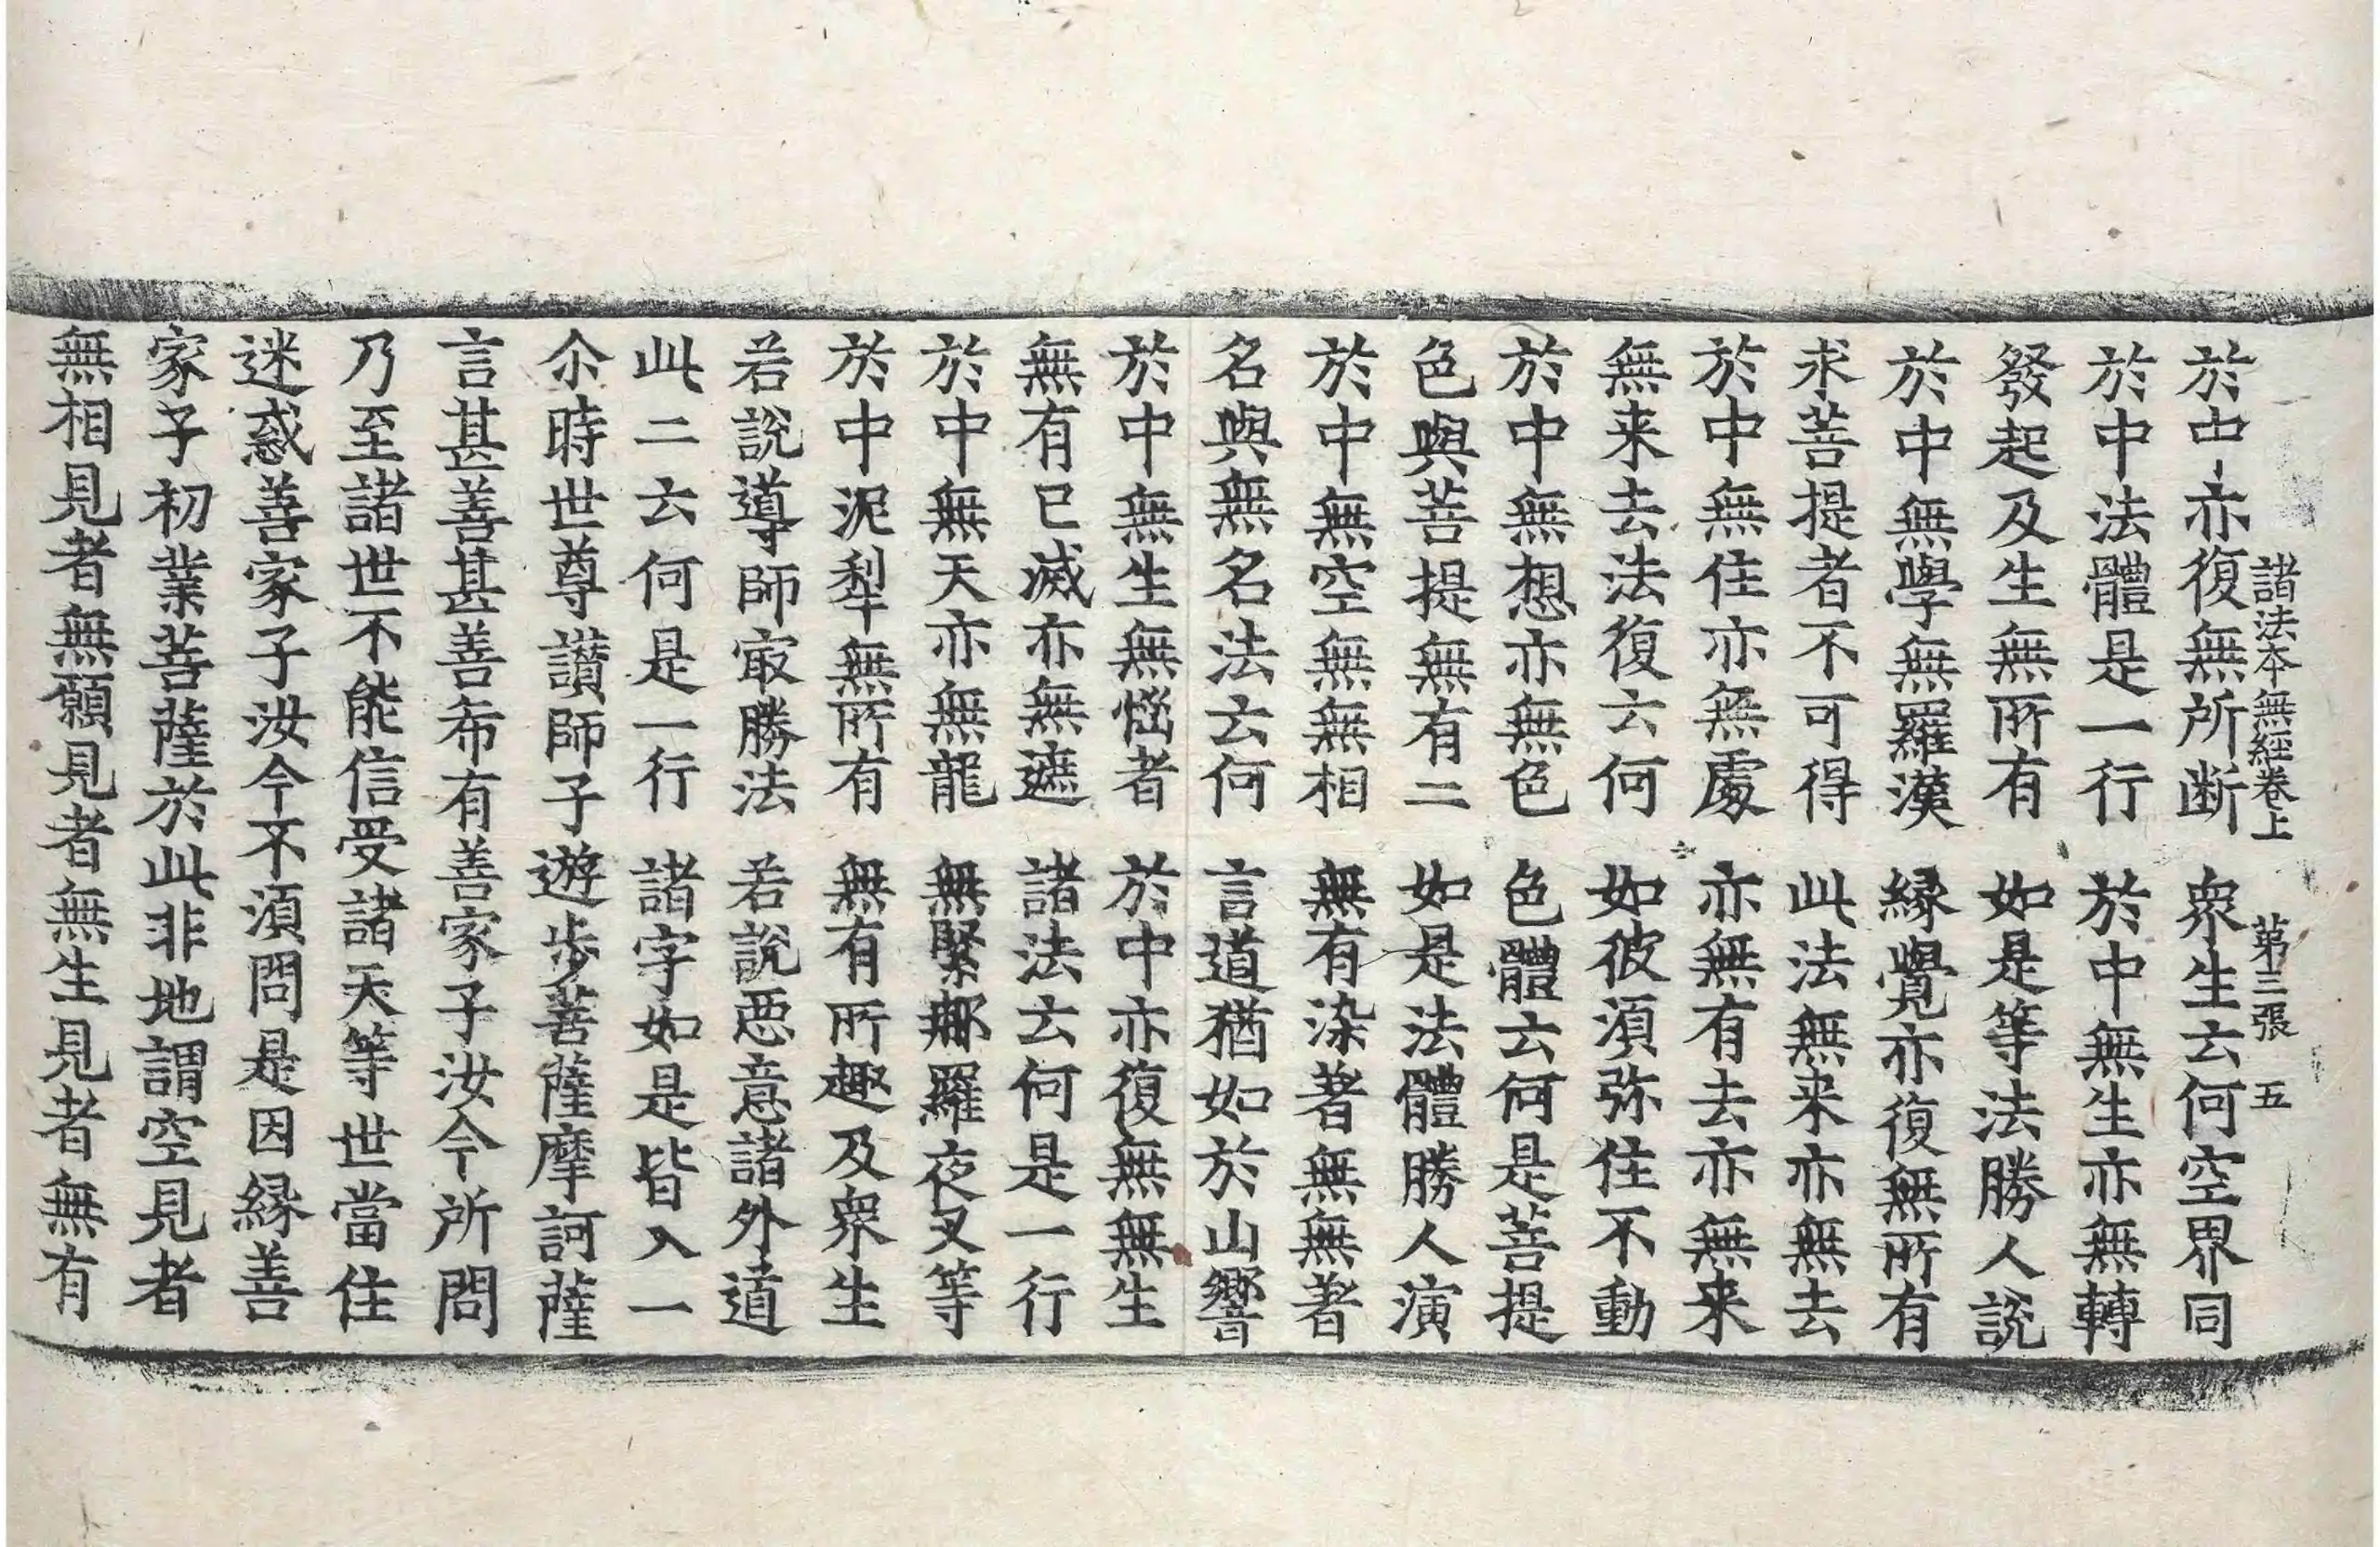 諸法本無經卷上 第三張 五
於中亦復無所断 衆生云何空界同
於中法體是一行 於中無生亦無轉
發起及生無所有 如是等法勝人說
於中無學無羅漢 縁覺亦復無所有
求菩提者不可得 此法無来亦無去
於中無住亦無處 亦無有去亦無来
無来去法復云何 如彼須弥住不動
於中無想亦無色 色體云何是菩提
色與菩提無有二 如是法體勝人演
於中無空無無相 無有染著無無著
名與無名法云何 言道猶如於山響
於中無生無惱者 於中亦復無無生
無有已滅亦無遮 諸法云何是一行
於中無天亦無龍 無緊那羅夜叉等
於中泥犁無所有 無有所趣及衆生
若說導師㝡勝法 若說惡意諸外道
此二云何是一行 諸字如是皆入一
尒時世尊讃師子遊步菩薩摩訶薩
言甚善甚善希有善家子汝今所問
乃至諸世不能信受諸天等世當住
迷惑善家子汝今不須問是因縁善
家子初業菩薩於此非地謂空見者
無相見者無願見者無生見者無有